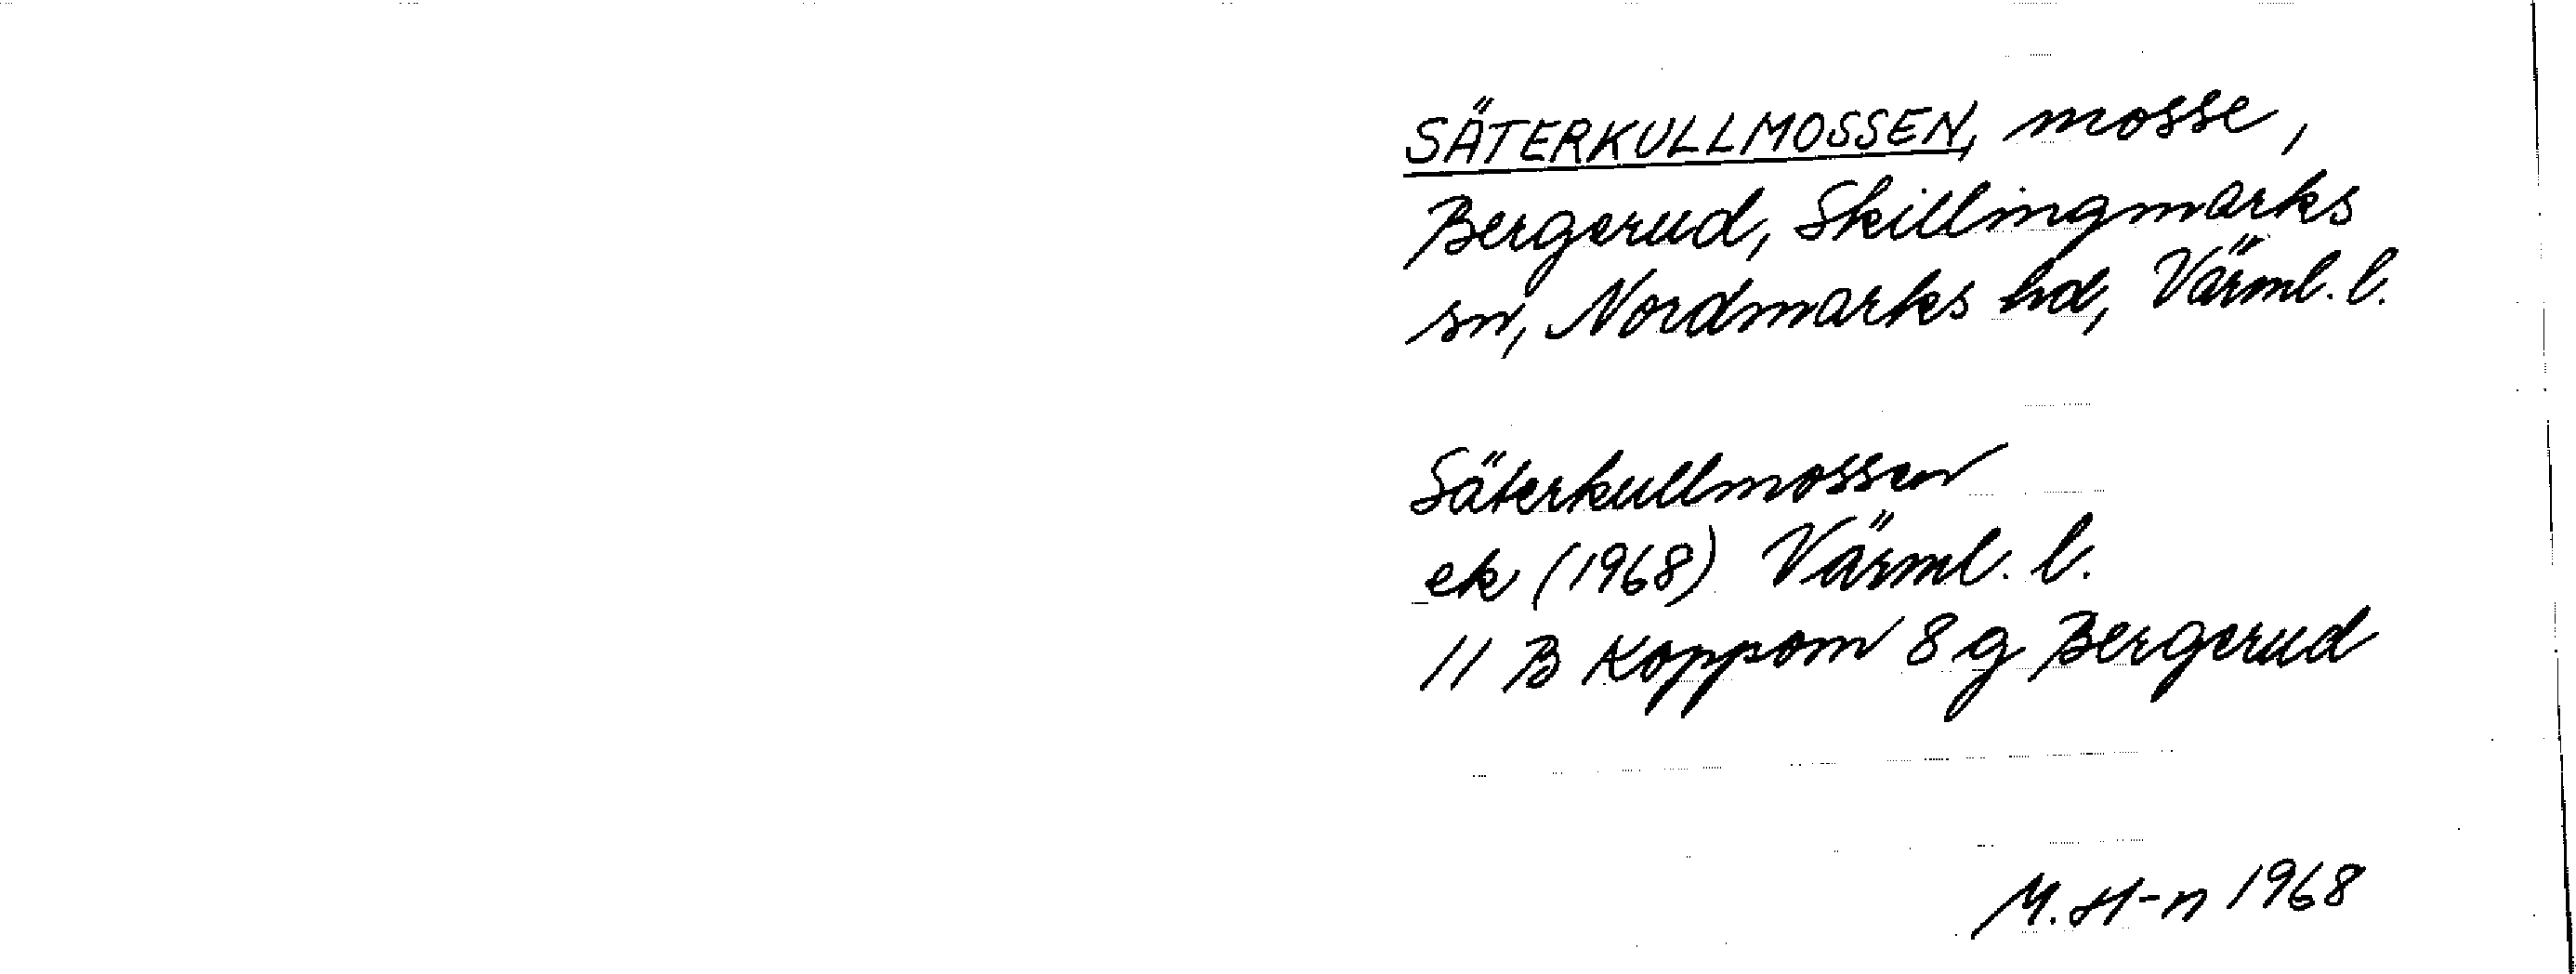 SÄTERKULLMOSSEN, mosse,
Bergerud, Skillingmarks
sn, Nordmarks hd, Värml. l.
Säterkullmossen
ek (1968) Värml. l.
11 B Koppom 8 g Bergerud
M. H-n 1968